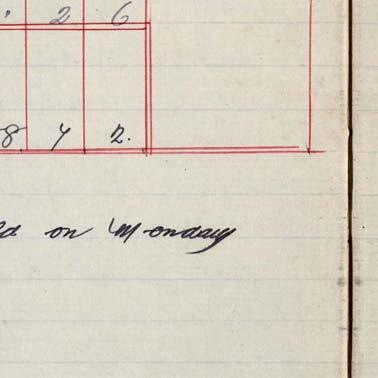 2 6
8 7 2.
on Monday